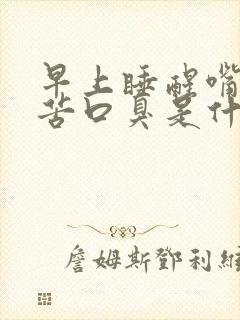 早上睡醒嘴
苦口臭是什
詹姆斯鄧利維